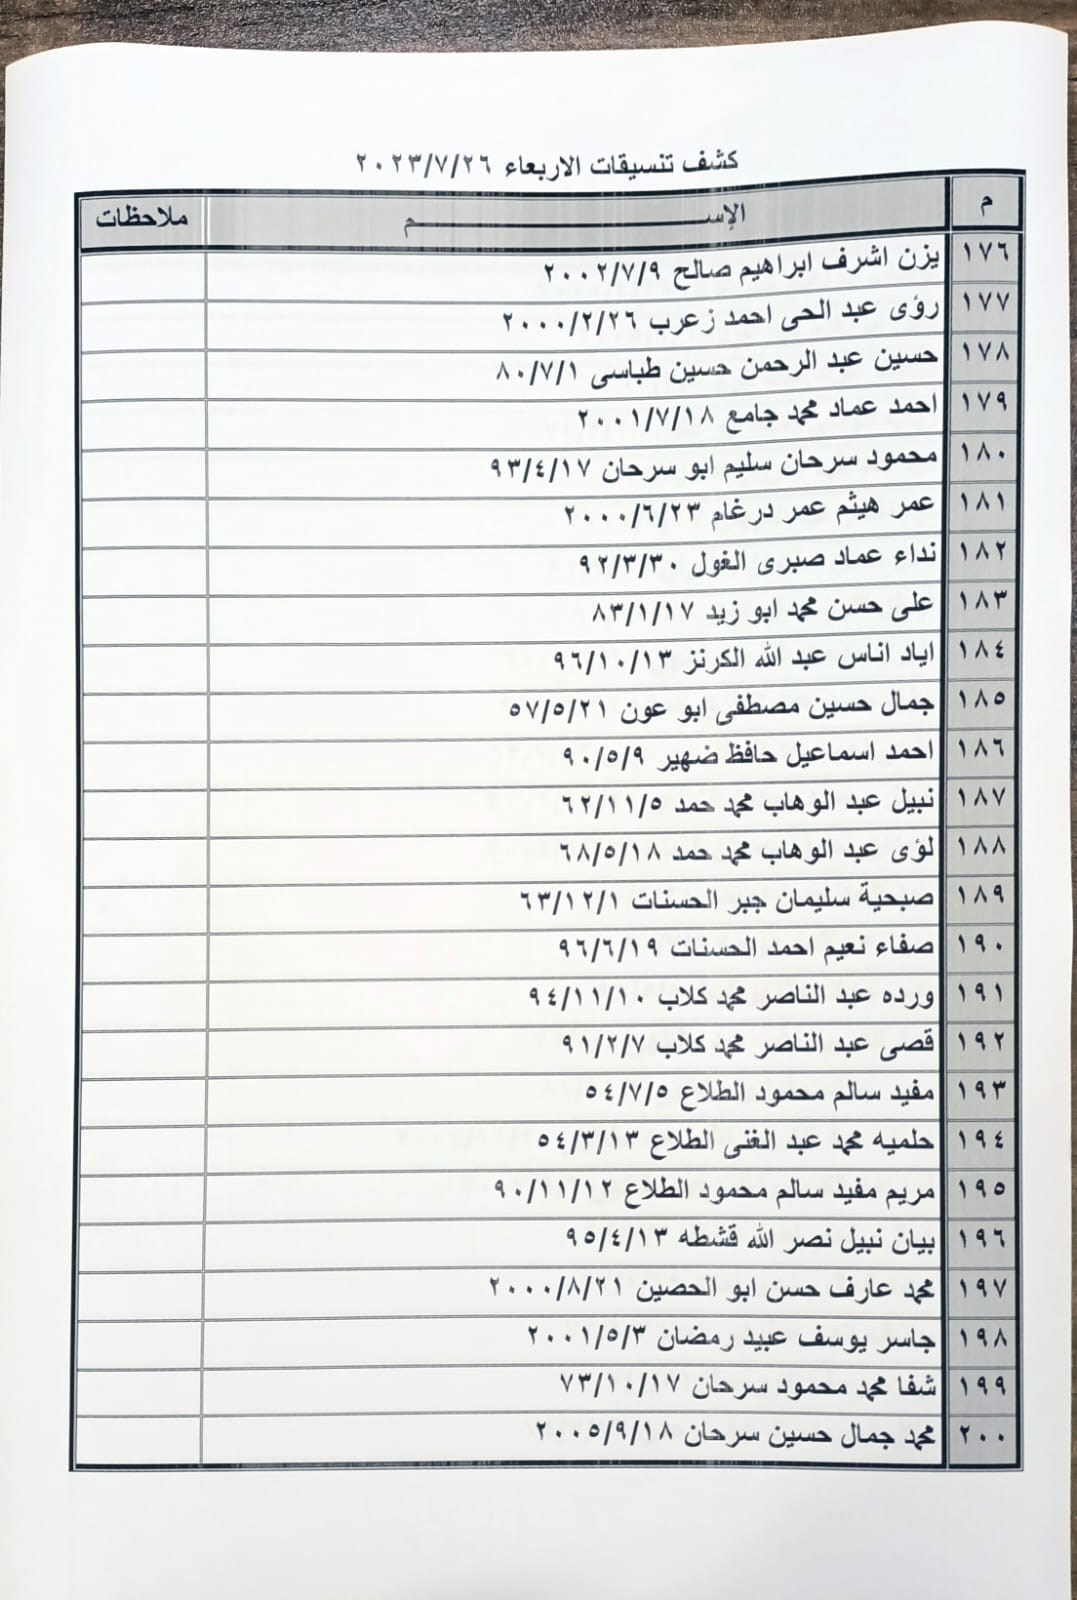 كشف تنسيقات الاربعاء ٢٠٢٣/٧/٢٦
م الإســـــــــــــــــــــم ملاحظات
١٧٦ يزن اشرف ابراهيم صالح ٢٠٠٢/٧/٩
١٧٧ رؤى عبد الحى احمد زعرب ٢٠٠٠/٢/٢٦
١٧٨ حسين عبد الرحمن حسين طباسى ٨٠/٧/١
١٧٩ احمد عماد محمد جامع ٢٠٠١/٧/١٨
١٨٠ محمود سرحان سليم ابو سرحان ٩٣/٤/١٧
١٨١ عمر هيثم عمر درغام ٢٠٠٠/٦/٢٣
١٨٢ نداء عماد صبرى الغول ٩٢/٣/٣٠
١٨٣ على حسن محمد ابو زيد ٨٣/١/١٧
١٨٤ اياد اناس عبد الله الكرنز ٩٦/١٠/١٣
١٨٥ جمال حسين مصطفى ابو عون ٥٧/٥/٢١
١٨٦ احمد اسماعيل حافظ ضهير ٩٠/٥/٩
١٨٧ نبيل عبد الوهاب محمد حمد ٦٢/١١/٥
١٨٨ لؤى عبد الوهاب محمد حمد ٦٨/٥/١٨
١٨٩ صبحية سليمان جبر الحسنات ٦٣/١٢/١
١٩٠ صفاء نعيم احمد الحسنات ٩٦/٦/١٩
١٩١ ورده عبد الناصر محمد كلاب ٩٤/١١/١٠
١٩٢ قصى عبد الناصر محمد كلاب ٩١/٢/٧
١٩٣ مفيد سالم محمود الطلاع ٥٤/٧/٥
١٩٤ حلميه محمد عبد الغنى الطلاع ٥٤/٣/١٣
١٩٥ مريم مفيد سالم محمود الطلاع ٩٠/١١/١٢
١٩٦ بيان نبيل نصر الله قشطه ٩٥/٤/١٣
١٩٧ محمد عارف حسن ابو الحصين ٢٠٠٠/٨/٢١
١٩٨ جاسر يوسف عبيد رمضان ٢٠٠١/٥/٣
١٩٩ شفا محمد محمود سرحان ٧٣/١٠/١٧
٢٠٠ محمد جمال حسين سرحان ٢٠٠٥/٩/١٨